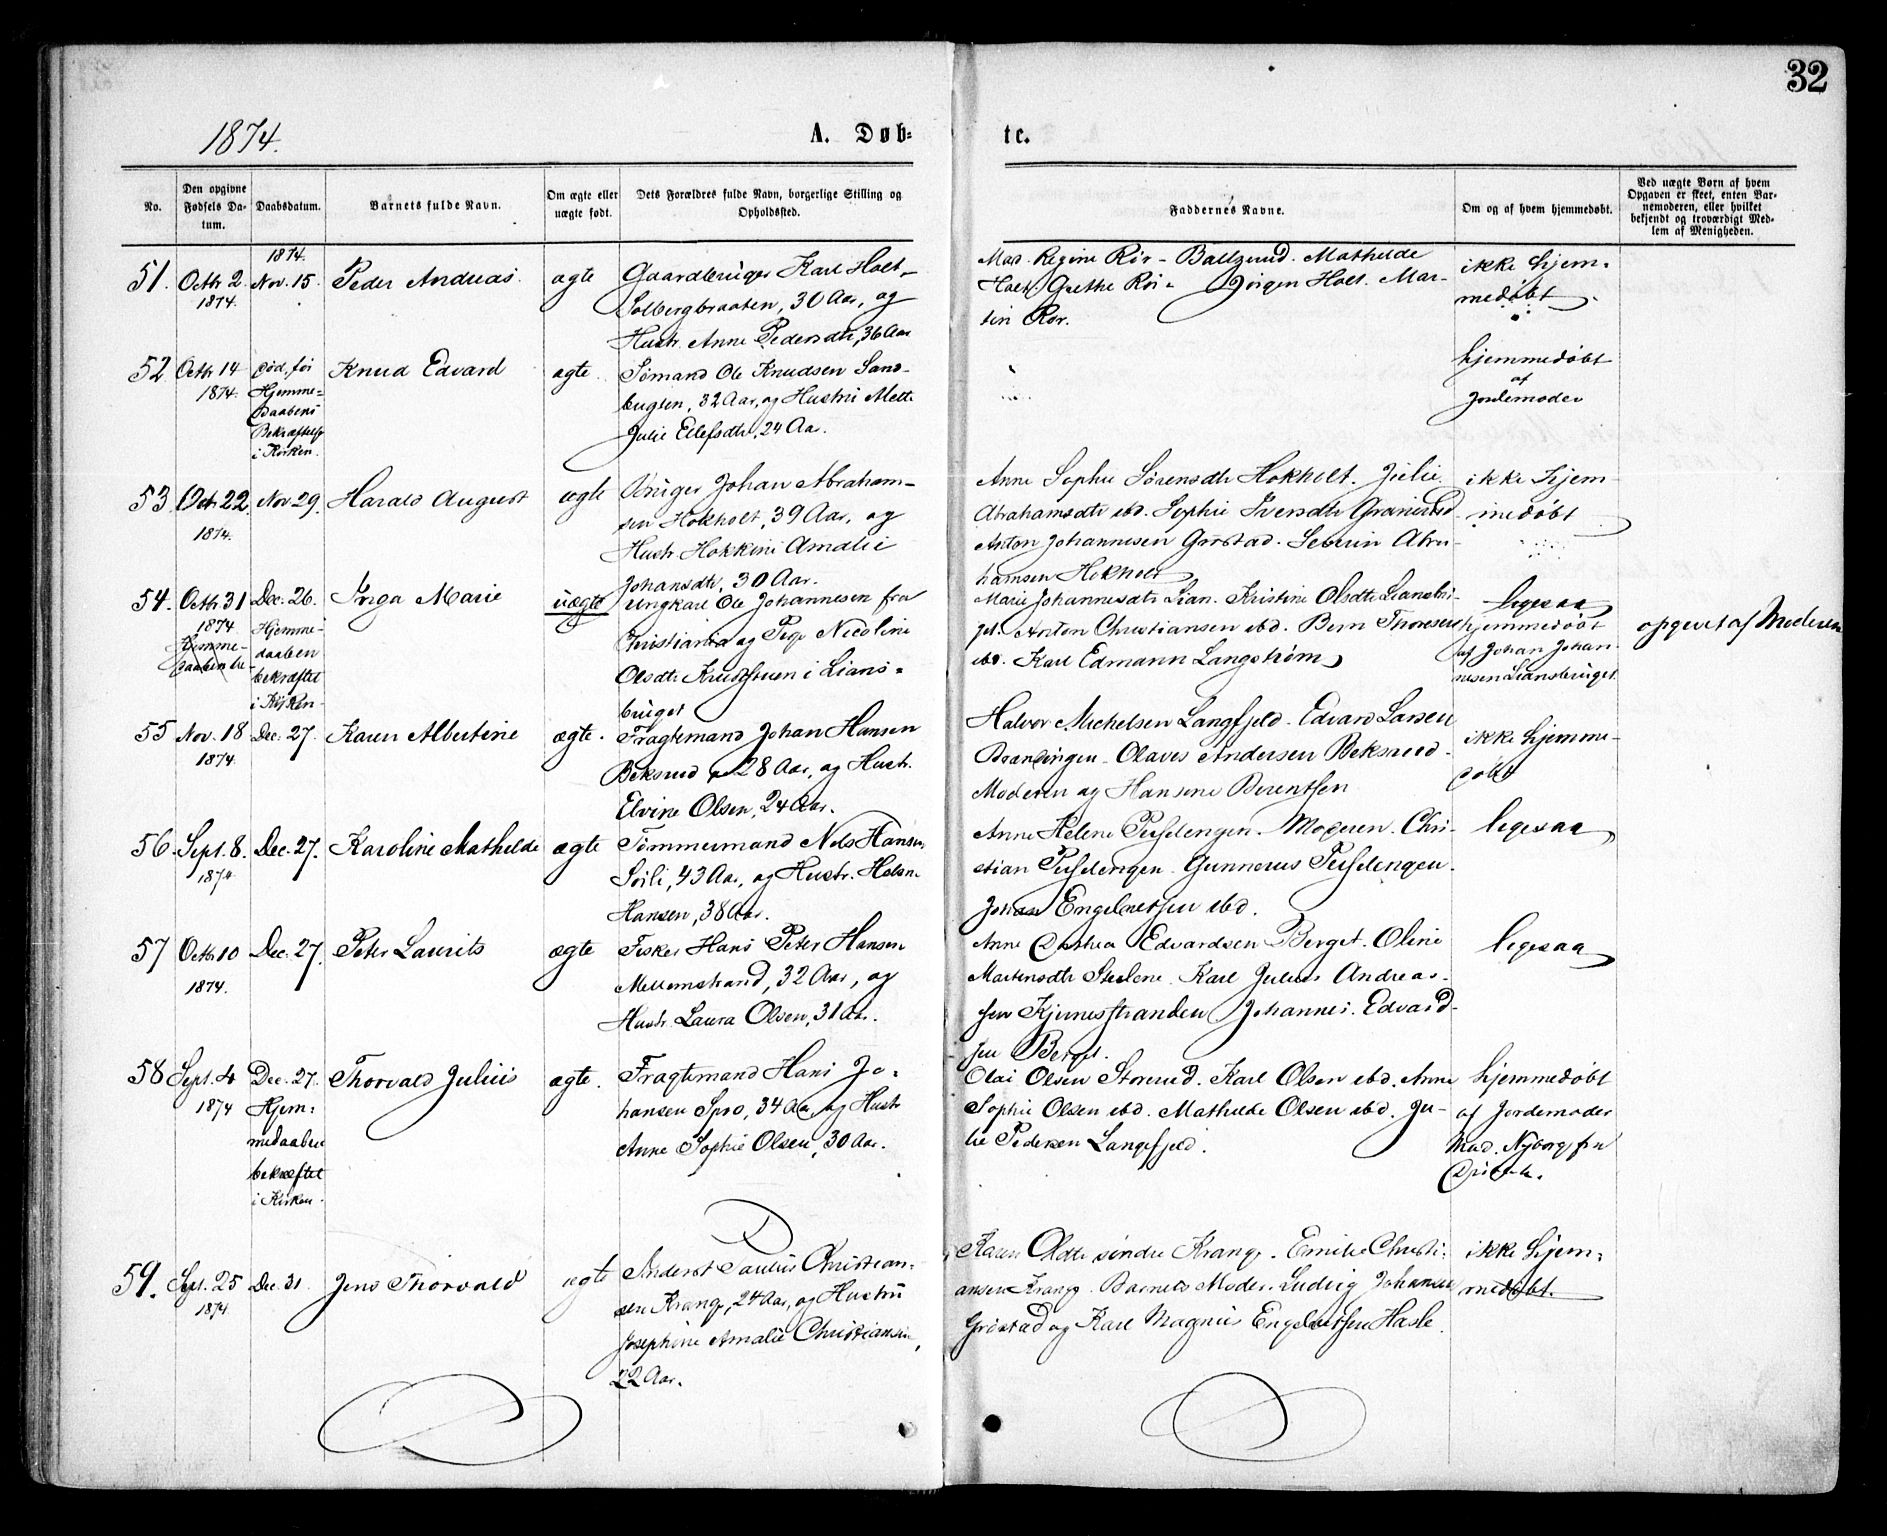 32
1874.
A. Døb-
te.
No.
Den opgivne
Fødsels Da-
tum.
Daabsdatum.
Barnets fulde Navn.
Om ægte eller
uægte født.
Dets Forældres fulde Navn, borgerlige Stilling og
Opholdssted.
Faddernes Navne.
Om og af hvem hjemmedøbt.
Ved uægte Børn af hvem
Opgaven er skeet, enten Bar-
nemoderen, eller hvilket
bekjendt og troværdigt Med-
lem af Menigheden.
51.
Octbr 2
1874.
1874.
Nov. 15.
Peder Andreas.
ægte
Gaardbruger Karl Holt
Solbergbraaten, 30 Aar, og
Hustr. Anne Pedersdtr, 36 Aar
Mad. Regine Rør - Mathilde
Holt. Grethe Rør - Jørgen Holt. Mar-
tin Rør.
ikke hjem-
medøbt.
52
Octbr 14
1874.
død, før
Hjemme-
Daabens
Bekræftelse
i Kirken.
Knud Edvard
ægte
Sømand Ole Knudsen Sand-
bugten, 32 Aar, og Hustru Mette
Julie Ellefsdtr, 24 Aar.
hjemmedøbt
af
Jordemoder
53
Octr 22
1874.
Nov 29.
Harald August
ægte
Bruger Johan Abraham-
sen Hokholt, 39 Aar, og
Hustr. Amalie
Johansdtr, 30 Aar.
Anne Sophie Sørensdtr Hokholt. Julie
Abrahamsdtr ibd. Sophie Iversdtr
Anton Johannesen Grøstad. Severin Abra-
hamsen Hokholt
ikke hjem-
medøbt
54.
Octbr 31
1874
Hjemme-
daaben be-
Dec. 26.
Hjemme-
daaben
bekræftet
i Kirken
Inga Marie
uægte
Ungkarl Ole Johannesen fra
Christiania og Pige Nicoline
Olsdtr Knudsstuen i Lians-
bruget
Marie Johannesdtr Lian. Kristine Olsdtr Liansbru-
get. Anton Christiansen ibd. Bern Thoresen
ibd. Karl Edmann Langstrøm
ligesaa
hjemmedøbt
af Johan Johan-
nesen Liansbruget.
opgivet af Moderen
55
Nov. 18
1874.
Dec. 27.
Karen Albertine
ægte.
Fragtemand Johan Hansen
Beksrud 28 Aar, og Hustr.
Elvine Olsen, 24 Aar.
Halvor Michelsen Langfjeld. Edvard Larsen
Brændingen. Olaves Andersen Beksrud.
Moderen og Hansine Berentsen
ikke hjemme-
døbt
56.
Sept. 8.
1874.
Dec. 27.
Karoline Mathilde
ægte
Tømmermand Nels Hansen
43 Aar, og Hustr. Helene
Hansen, 38 Aar.
Anne Helene Moderen. Chri-
stian Gunnerus
Johan Engebretsen ibd.
ligesaa
57
Octbr 10
1874.
Dec. 27.
Peter Laurits
ægte
Fisker Hans Peter Hansen
Mellemstrand, 32 Aar, og
Hustr. Laura Olsen, 31 Aar.
Anne Edvardsen Berget. Oline
Martinsdtr Karl Julius Andrea-
sen Johannes Edvard-
sen Berget.
ligesaa
58
Sept. 4
1874
Dec. 27.
Hjem-
medaaben
bekræftet
i Kirken.
Thorvald Julius
ægte.
Fragtemand Hans Jo-
hansen Spro, 34 Aar, og Hustr
Anne Sophie Olsen, 30 Aar.
Olai Olsen Storerud. Karl Olsen ibd. Anne
Sophie Olsen ibd. Mathilde Olsen ibd. Ju-
lie Pedersen Langfjeld.
hjemmedøbt
af Jordemoder
Mad. Nyborg fra
59.
Sept. 25
1874.
Dec. 31.
Jens Thorvald
ægte
Inderst Paulus Christian-
sen Krange, 24 Aar, og Hustru
Josephine Amalie Christiansen,
22 Aar.
Karen Olsdtr søndre Krange. Emilie Christi-
ansen Krange. Barnets Moder. Ludvig Johansen
Grøstad og Karl Magnus Engebretsen Hasle.
ikke hjem-
medøbt.